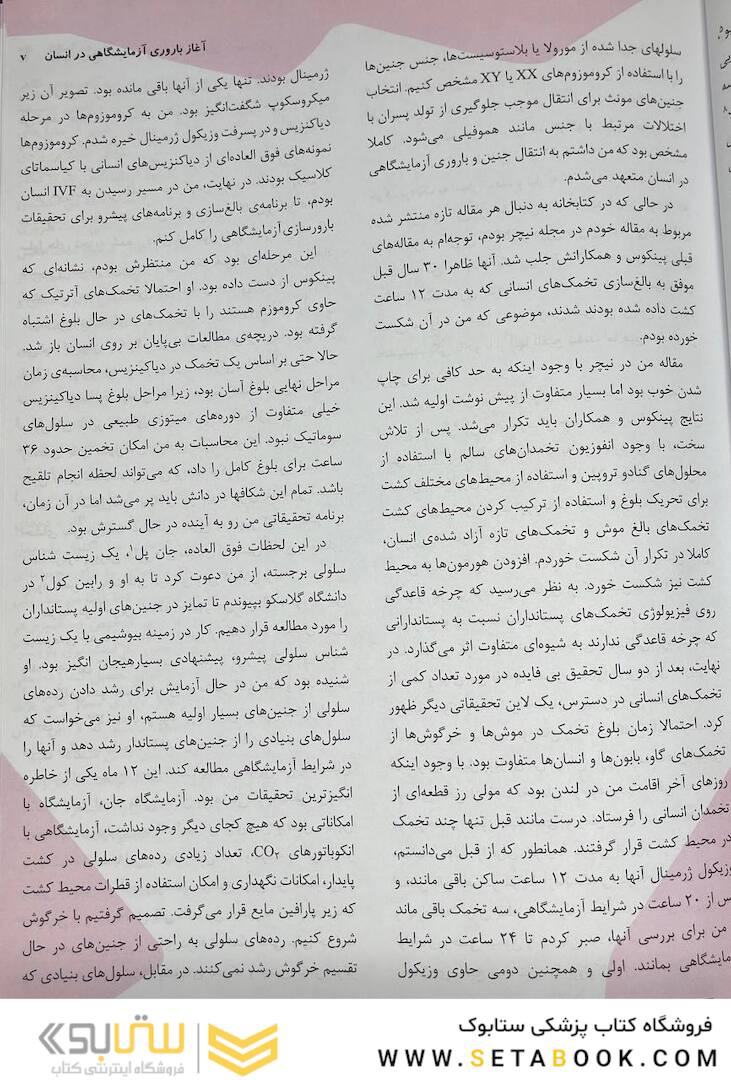 آغاز باروری آزمایشگاهی در انسان ۷
سلولهای جدا شده از مورولا یا بلاستوسیست‌ها، جنس جنین‌ها
را با استفاده از کروموزوم‌های XX یا XY مشخص کنیم. انتخاب
جنین‌های مونث برای انتقال موجب جلوگیری از تولد پسران با
اختلالات مرتبط با جنس مانند هموفیلی می‌شود. کاملا
مشخص بود که من داشتم به انتقال جنین و باروری آزمایشگاهی
در انسان متعهد می‌شدم.
در حالی که در کتابخانه به دنبال هر مقاله تازه منتشر شده
مربوط به مقاله خودم در مجله نیچر بودم، توجه‌ام به مقاله‌های
قبلی پینکوس و همکارانش جلب شد. آنها ظاهرا ۳۰ سال قبل
موفق به بالغ‌سازی تخمک‌های انسانی که به مدت ۱۲ ساعت
کشت داده شده بودند شدند، موضوعی که من در آن شکست
خورده بودم.
مقاله من در نیچر با وجود اینکه به حد کافی برای چاپ
شدن خوب بود اما بسیار متفاوت از پیش نوشت اولیه شد. این
نتایج پینکوس و همکاران باید تکرار می‌شد. پس از تلاش
سخت، با وجود انفوزیون تخمدان‌های سالم با استفاده از
محلول‌های گنادو تروپین و استفاده از محیط‌های مختلف کشت
برای تحریک بلوغ و استفاده از ترکیب کردن محیط‌های کشت
تخمک‌های بالغ موش و تخمک‌های تازه آزاد شده‌ی انسان،
کاملا در تکرار آن شکست خوردم. افزودن هورمون‌ها به محیط
کشت نیز شکست خورد. به نظر می‌رسید که چرخه قاعدگی
روی فیزیولوژی تخمک‌های پستانداران نسبت به پستاندارانی
که چرخه قاعدگی ندارند به شیوه‌ای متفاوت اثر می‌گذارد. در
نهایت، بعد از دو سال تحقیق بی فایده در مورد تعداد کمی از
تخمک‌های انسانی در دسترس، یک لاین تحقیقاتی دیگر ظهور
کرد. احتمالا زمان بلوغ تخمک در موش‌ها و خرگوش‌ها از
تخمک‌های گاو، بابون‌ها و انسان‌ها متفاوت بود. با وجود اینکه
روزهای آخر اقامت من در لندن بود که مولی رز قطعه‌ای از
تخمدان انسانی را فرستاد. درست مانند قبل تنها چند تخمک
در محیط کشت قرار گرفتند. همانطور که از قبل می‌دانستم،
وزیکول ژرمینال آنها به مدت ۱۲ ساعت ساکن باقی مانند، و
پس از ۲۰ ساعت در شرایط آزمایشگاهی، سه تخمک باقی ماند
من برای بررسی آنها، صبر کردم تا ۲۴ ساعت در شرایط
آزمایشگاهی بمانند. اولی و همچنین دومی حاوی وزیکول
ژرمینال بودند. تنها یکی از آنها باقی مانده بود. تصویر آن زیر
میکروسکوپ شگفت‌انگیز بود. من به کروموزوم‌ها در مرحله
دیاکنزیس و در پسرفت وزیکول ژرمینال خیره شدم. کروموزوم‌ها
نمونه‌های فوق العاده‌ای از دیاکنزیس‌های انسانی با کیاسماتای
کلاسیک بودند. در نهایت، من در مسیر رسیدن به IVF انسان
بودم، تا برنامه‌ی بالغ‌سازی و برنامه‌های پیشرو برای تحقیقات
بارورسازی آزمایشگاهی را کامل کنم.
این مرحله‌ای بود که من منتظرش بودم، نشانه‌ای که
پینکوس از دست داده بود. او احتمالا تخمک‌های آترتیک که
حاوی کروموزم هستند را با تخمک‌های در حال بلوغ اشتباه
گرفته بود. دریچه‌ی مطالعات بی‌پایان بر روی انسان باز شد.
حالا حتی بر اساس یک تخمک در دیاکینزیس، محاسبه‌ی زمان
مراحل نهایی بلوغ آسان بود، زیرا مراحل بلوغ پسا دیاکینزیس
خیلی متفاوت از دوره‌های میتوزی طبیعی در سلول‌های
سوماتیک نبود. این محاسبات به من امکان تخمین حدود ۳۶
ساعت برای بلوغ کامل را داد، که می‌تواند لحظه انجام تلقیح
باشد. تمام این شکافها در دانش باید پر می‌شد اما در آن زمان،
برنامه تحقیقاتی من رو به آینده در حال گسترش بود.
در این لحظات فوق العاده، جان پل۱، یک زیست شناس
سلولی برجسته، از من دعوت کرد تا به او و رابین کول۲ در
دانشگاه گلاسکو بپیوندم تا تمایز در جنین‌های اولیه پستانداران
را مورد مطالعه قرار دهیم. کار در زمینه بیوشیمی با یک زیست
شناس سلولی پیشرو، پیشنهادی بسیارهیجان انگیز بود. او
شنیده بود که من در حال آزمایش برای رشد دادن رده‌های
سلولی از جنین‌های بسیار اولیه هستم، او نیز می‌خواست که
سلول‌های بنیادی را از جنین‌های پستاندار رشد دهد و آنها را
در شرایط آزمایشگاهی مطالعه کند. این ۱۲ ماه یکی از خاطره
انگیزترین تحقیقات من بود. آزمایشگاه جان، آزمایشگاه با
امکاناتی بود که هیچ کجای دیگر وجود نداشت، آزمایشگاهی با
انکوباتورهای CO۲، تعداد زیادی رده‌های سلولی در کشت
پایدار، امکانات نگهداری و امکان استفاده از قطرات محیط کشت
که زیر پارافین مایع قرار می‌گرفت. تصمیم گرفتیم با خرگوش
شروع کنیم. رده‌های سلولی به راحتی از جنین‌های در حال
تقسیم خرگوش رشد نمی‌کنند. در مقابل، سلول‌های بنیادی که
فروشگاه کتاب پزشکی ستابوک
WWW.SETABOOK.COM
ستابوک
فروشگاه اینترنتی کتاب